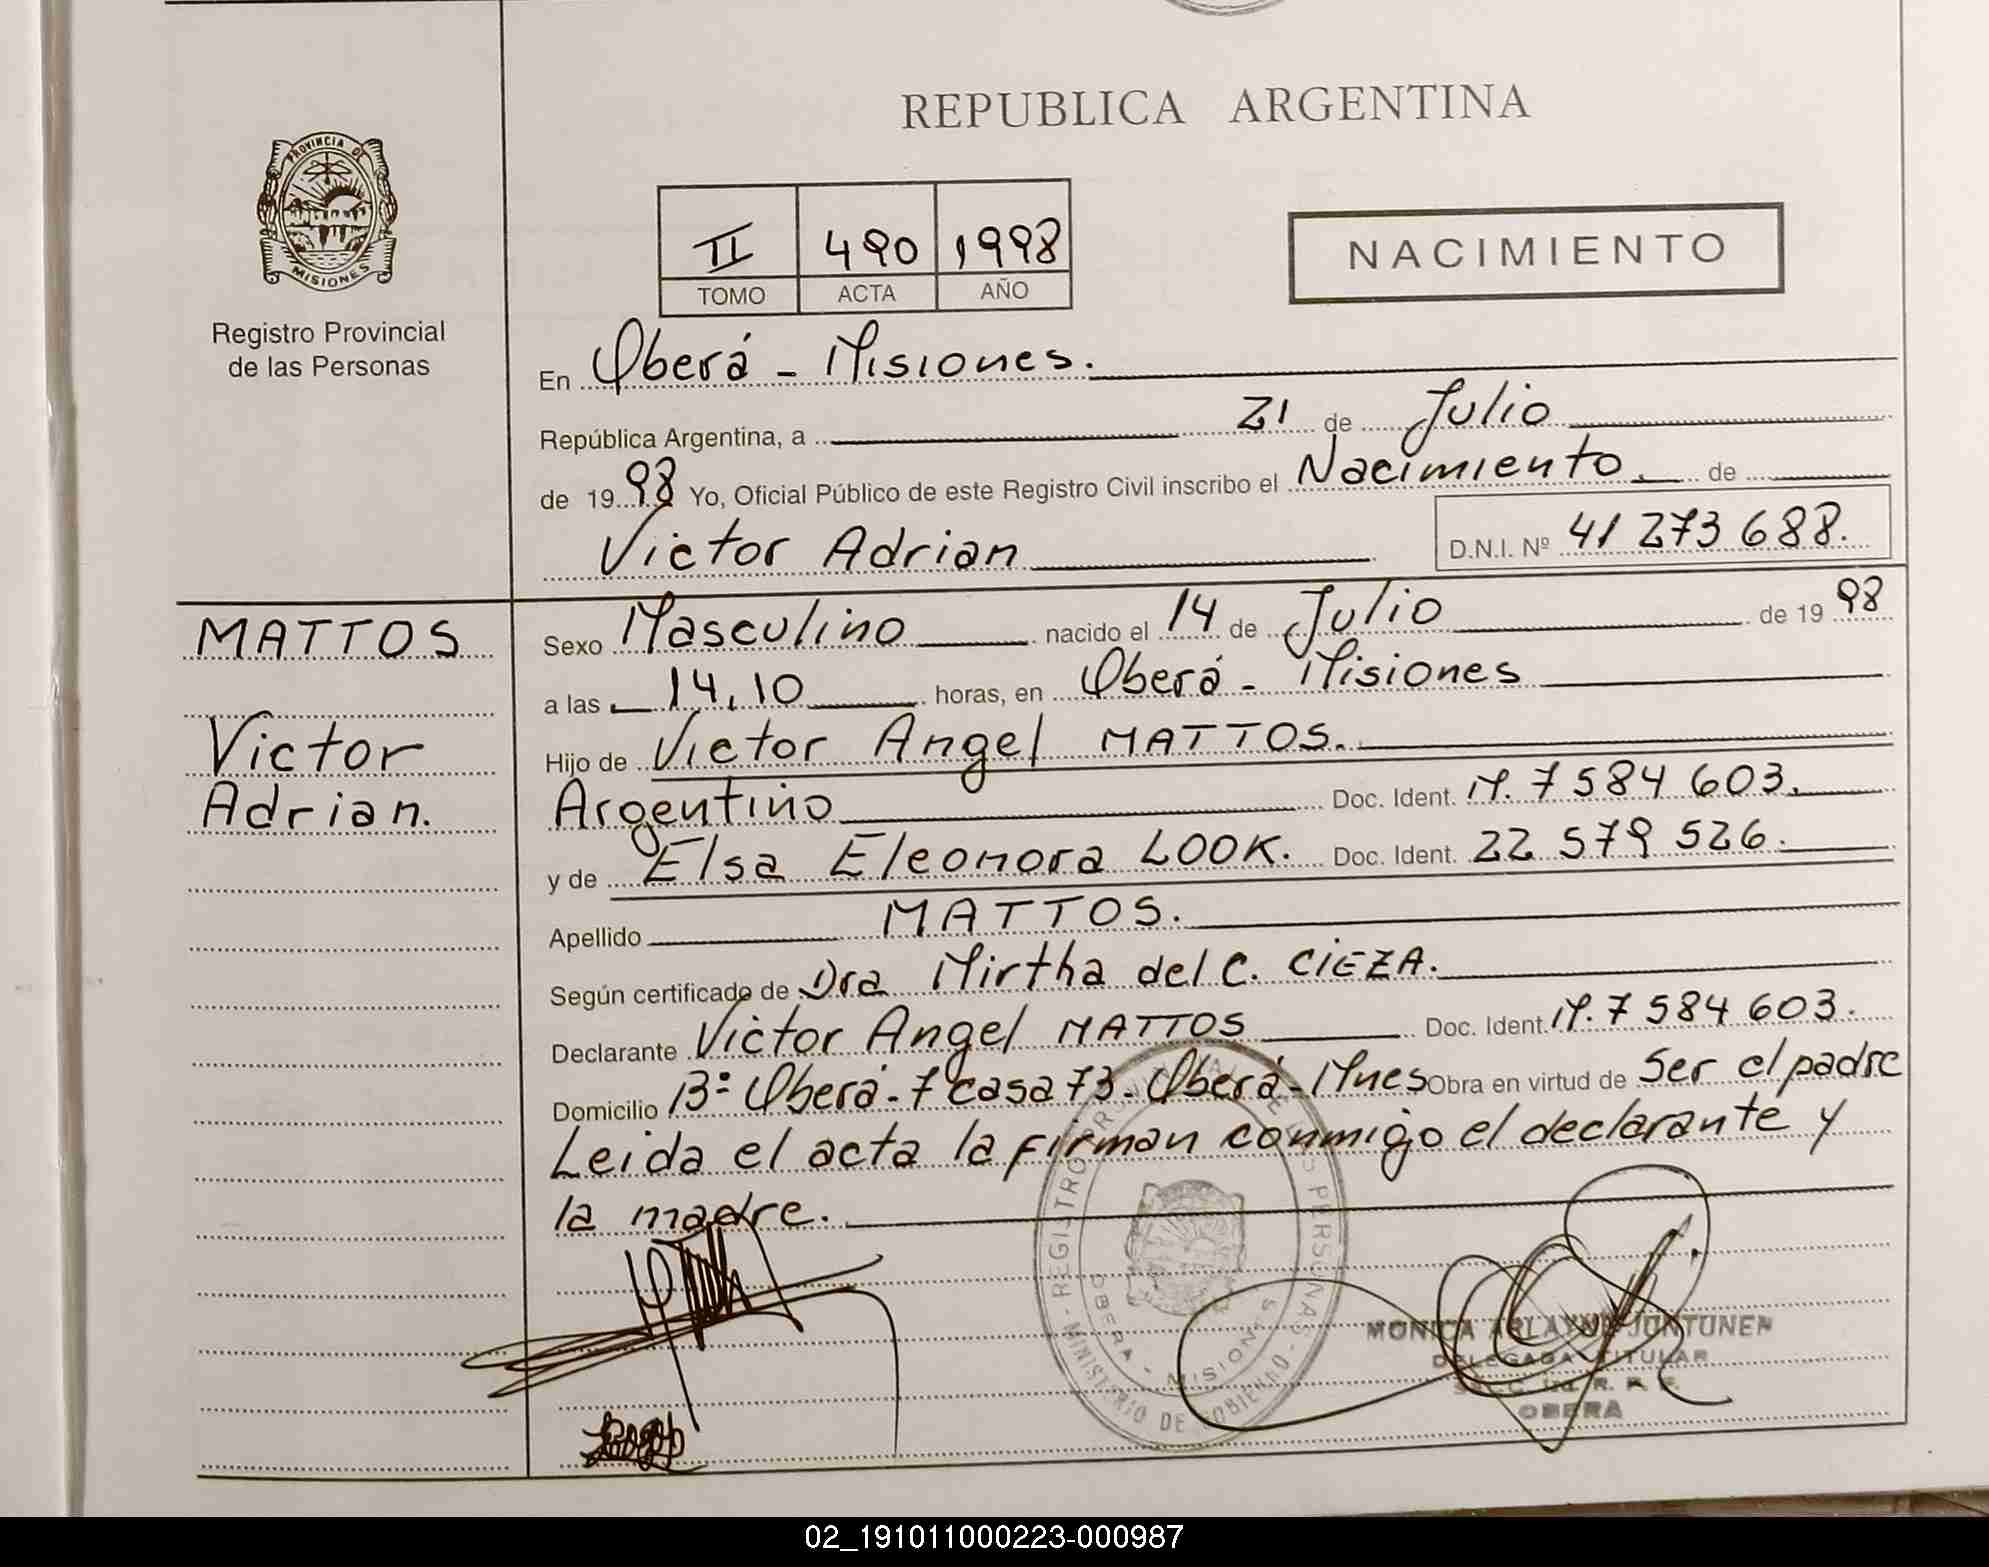 REPUBLICA ARGENTINA
PROVINCIA DE
MISIONES
Registro Provincial
de las Personas
II 490 1998
TOMO ACTA AÑO
NACIMIENTO
En Oberá - Misiones.
República Argentina, a 21 de Julio
de 1998 Yo, Oficial Público de este Registro Civil inscribo el Nacimiento. de
Victor Adrian D.N.I. Nº 41 273 688.
MATTOS
Victor
Adrian.
Sexo Masculino nacido el 14 de Julio de 1998
a las 14,10 horas, en Oberá - Misiones
Hijo de Victor Angel MATTOS.
Argentino Doc. Ident. M. 7 584 603.
y de Elsa Eleonora LOOK. Doc. Ident. 22 579 526.
Apellido MATTOS.
Según certificado de Dra Mirtha del C. CIEZA.
Declarante Victor Angel MATTOS Doc. Ident. M. 7 584 603.
Domicilio Bº Oberá - 7 casa 73 - Oberá - Mnes Obra en virtud de Ser el padre
Leida el acta la firman conmigo el declarante y
la madre.
REGISTRO PROVINCIAL DE LAS PERSONAS - MINISTERIO DE GOBIERNO -
OBERA - MISIONES
MONICA JUNTUNEN
DELEGADA TITULAR
OBERA
02_191011000223-000987